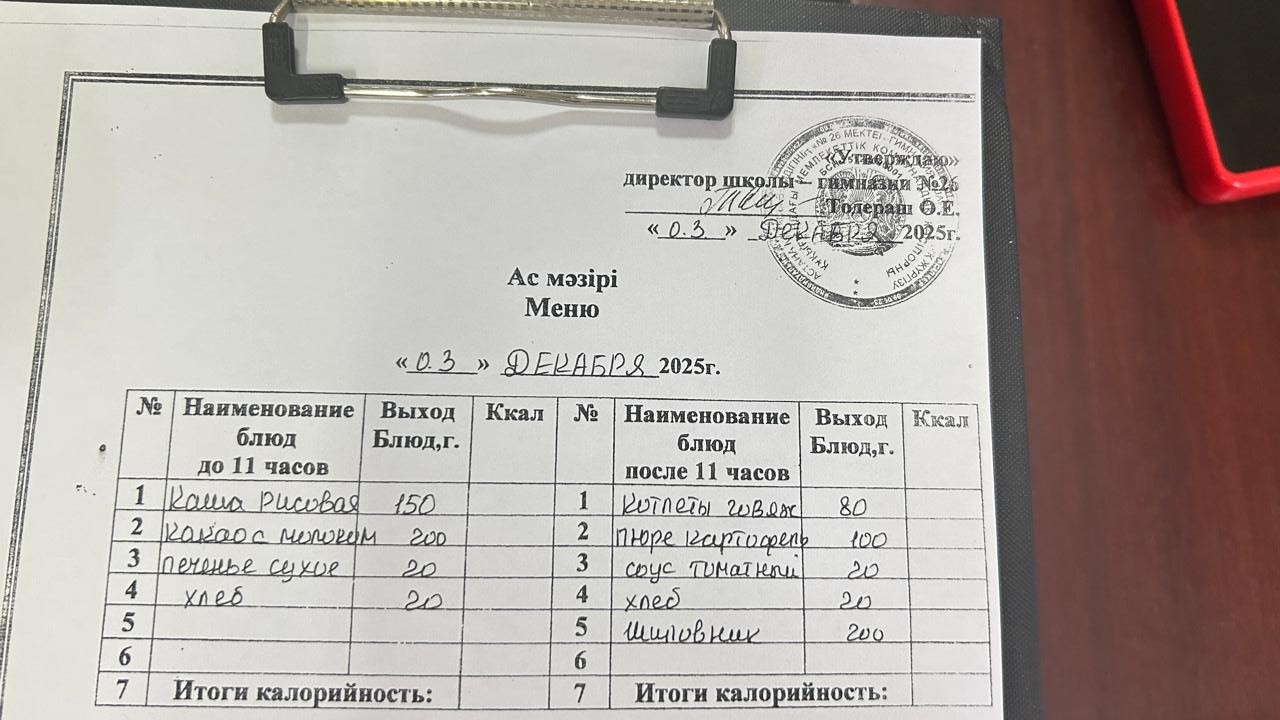 «Утверждаю»
директор школы – гимназии №26
Толераш Ө.Е.
« 03 » ДЕКАБРЯ 2025г.
Ас мәзірі
Меню
« 03 » ДЕКАБРЯ 2025г.
№ Наименование блюд до 11 часов Выход Блюд,г. Ккал № Наименование блюд после 11 часов Выход Блюд,г. Ккал
1 Каша рисовая 150 1 Котлеты говяж 80
2 какао с молоком 200 2 Пюре картофель 100
3 печенье сухое 20 3 соус томатный 20
4 хлеб 20 4 хлеб 20
5 5 Шиповник 200
6 6
7 Итоги калорийность: 7 Итоги калорийность: